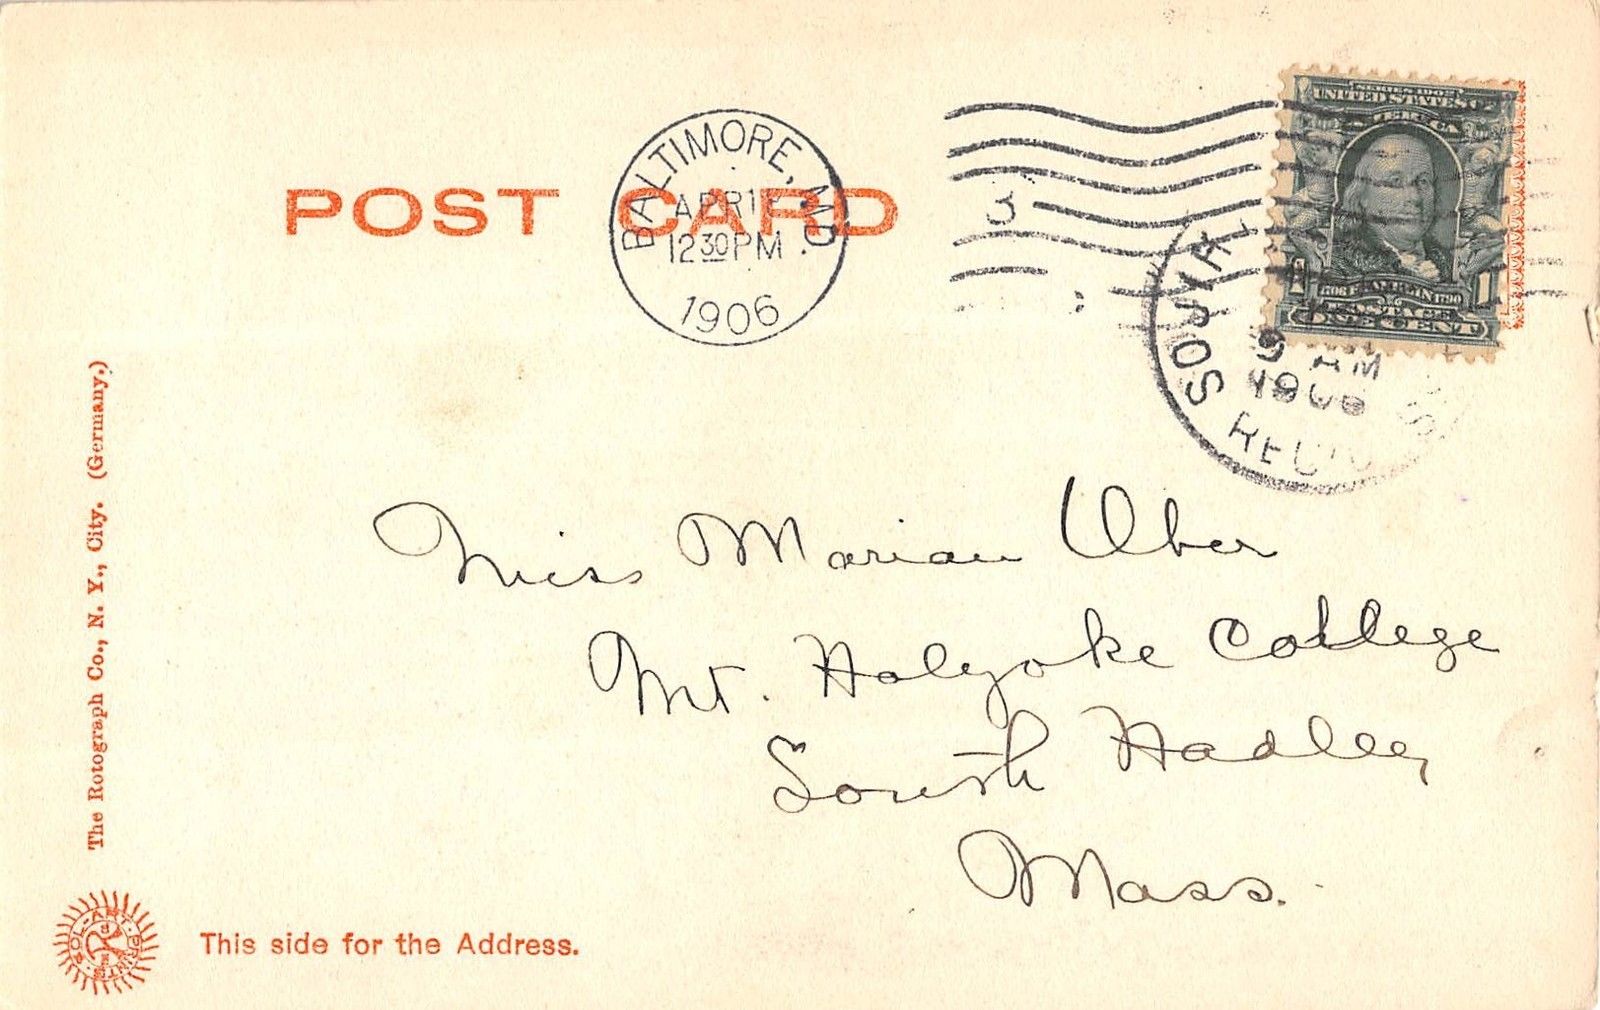 POST CARD
BALTIMORE, MD.
APR 1
12 30 PM
1906
3
SERIES 1902
UNITED STATES OF
AMERICA
1 1
1706 FRANKLIN 1790
POSTAGE
ONE CENT
SOUTH
9 AM
1906
REC'D
Miss Marian Uber
Mt. Holyoke College
South Hadley
Mass.
The Rotograph Co., N. Y., City. (Germany.)
SOL-ART PRINTS
This side for the Address.